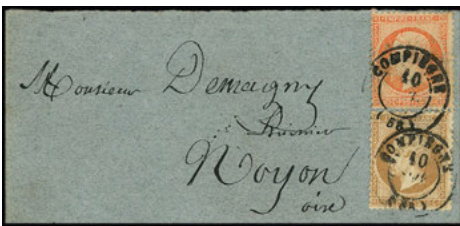 Monsieur Demagny
Noyon
oise
COMPIEGNE
10
(58)
COMPIEGNE
10